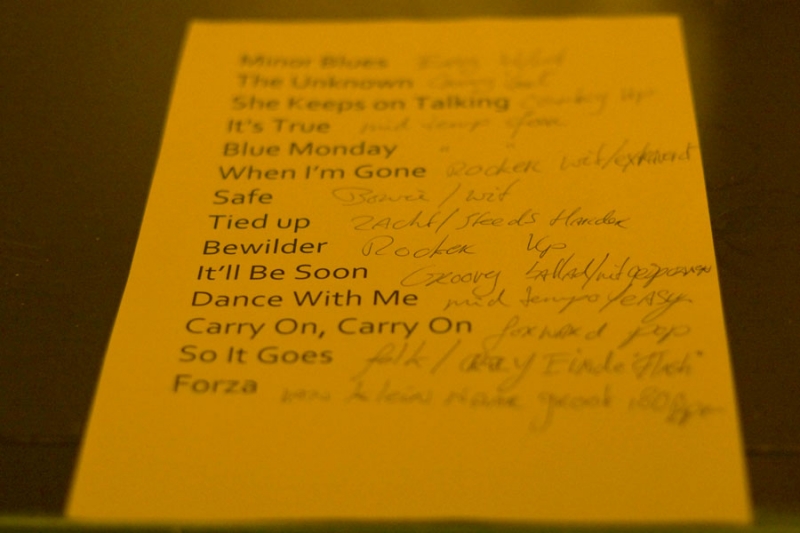 Minor Blues
The Unknown
She Keeps on Talking Country Up
It's True mid temp
Blue Monday " "
When I'm Gone Rocker wit/extravert
Safe Bowie/wit
Tied up zacht/steeds Harder
Bewilder Rocker Up
It'll Be Soon Groovy ballad/
Dance With Me mid tempo/easy
Carry On, Carry On forward pop
So It Goes folk/ Einde
Forza van klein naar groot 180 Bpm